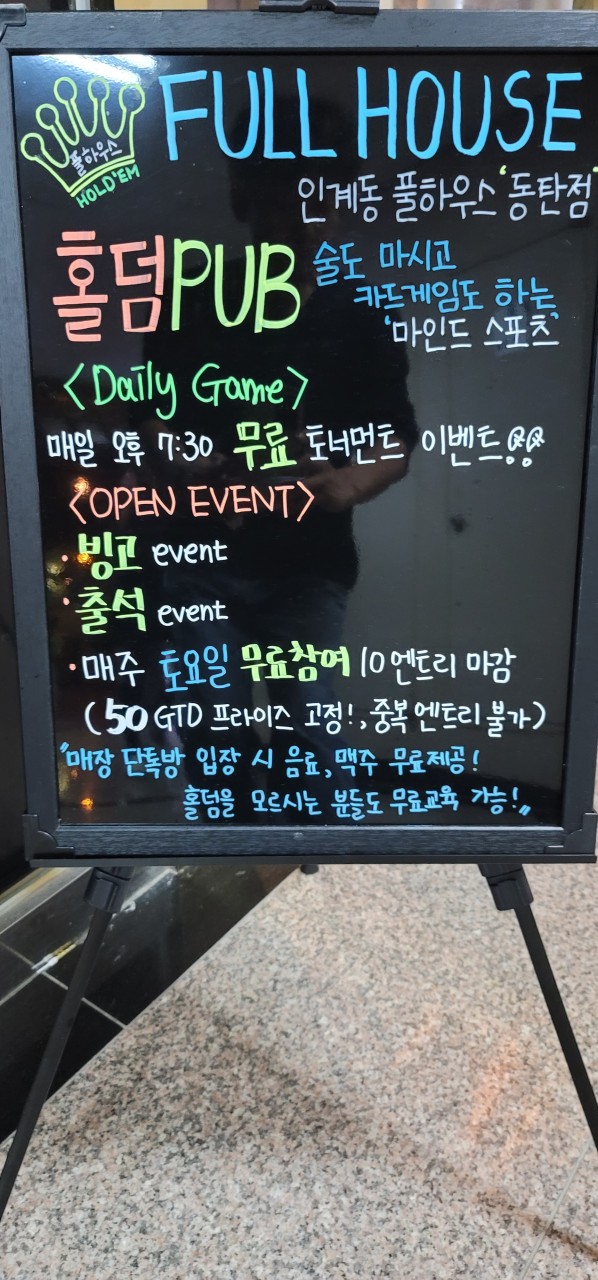 풀하우스
HOLD'EM
FULL HOUSE
인계동 풀하우스 '동탄점'
홀덤PUB
술도 마시고
카드게임도 하는
'마인드 스포츠'
<Daily Game>
매일 오후 7:30 무료 토너먼트 이벤트!!
<OPEN EVENT>
· 빙고 event
· 출석 event
· 매주 토요일 무료참여 10엔트리 마감
(50 GTD 프라이즈 고정!, 중복엔트리 불가)
"매장 단톡방 입장 시 음료, 맥주 무료제공!
홀덤을 모르시는 분들도 무료교육 가능!"